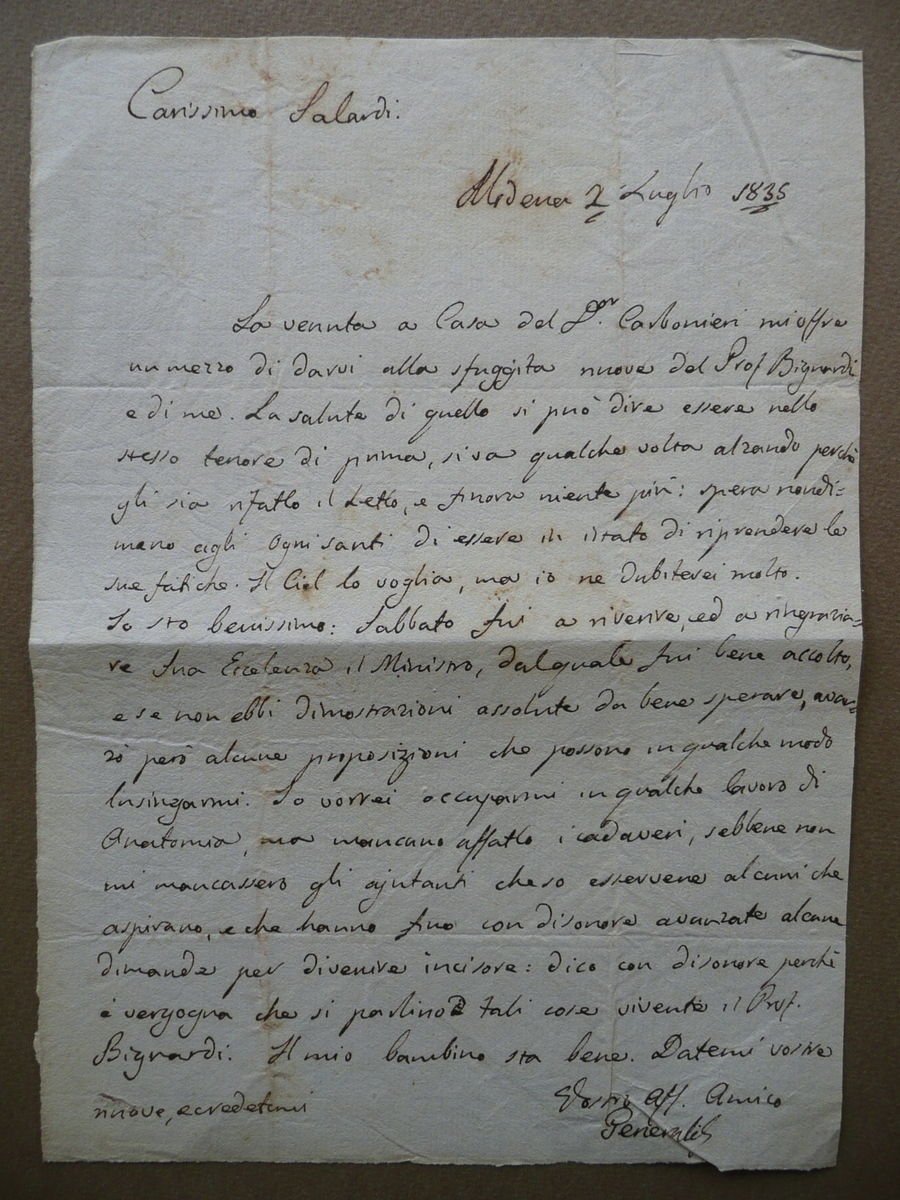 Carissimo Salardi.
Modena 2 Luglio 1835
La venuta a Casa del D.or Carbonieri mi offre
un mezzo di darvi alla sfuggita nuove del Prof Bignardi
e di me. La salute di quello si può dire essere nello
stesso tenore di prima, si va qualche volta alzando perchè
gli sia rifatto il Letto, e finora niente più: spera nondi=
meno agli Ognisanti di essere in istato di riprendere le
sue fatiche. Il Ciel lo voglia, ma io ne dubiterei molto.
Io sto benissimo: Sabbato fui a riverire, ed a ringrazia=
re Sua Eccelenza il Ministro, dal quale fui bene accolto,
e se non ebbi dimostrazioni assolute da bene sperare, avan=
zò però alcune proposizioni che possono in qualche modo
lusingarmi. Io vorrei occuparmi in qualche lavoro di
Anatomia, ma mancano affatto i cadaveri, sebbene non
mi mancassero gli ajutanti che so esservene alcuni che
aspirano, e che hanno fino con disonore avanzate alcune
dimande per divenire incisore: dico con disonore perchè
è vergogna che si parlino tali cose vivente il Prof.
Bignardi. Il mio bambino sta bene. Datemi vostre
nuove, e credetemi
Vostro Aff. Amico